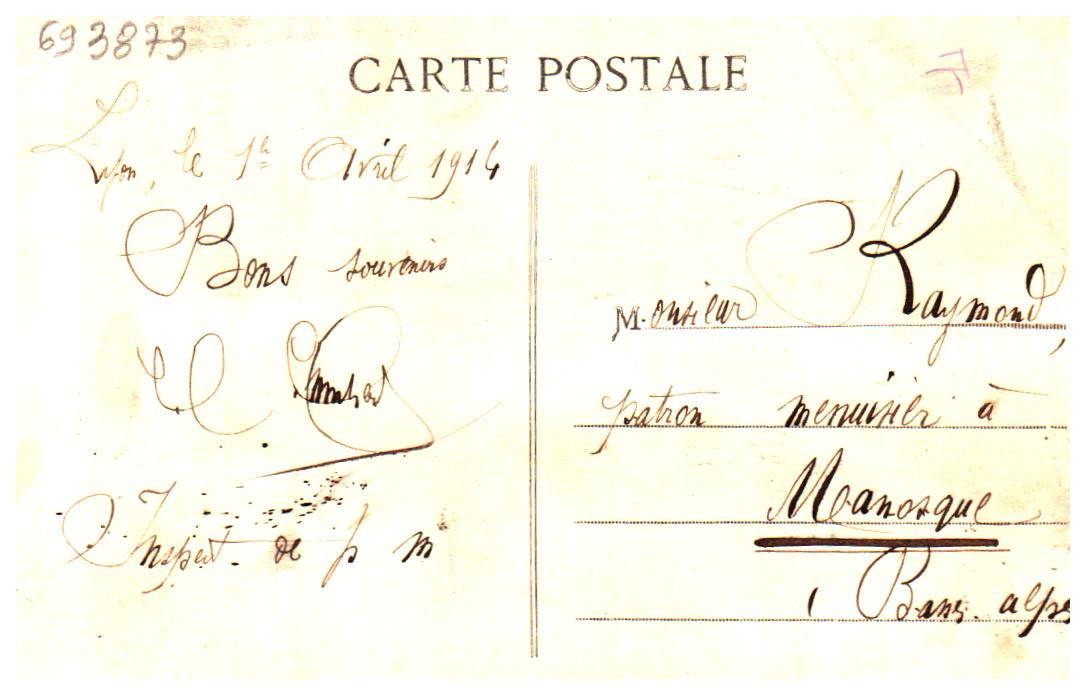 693873
CARTE POSTALE
Lyon, le 1er Avril 1914
Bons souvenirs
Inspect. de p m
Monsieur Raymond,
patron menuisier à
Manosque
(Bass. alpes